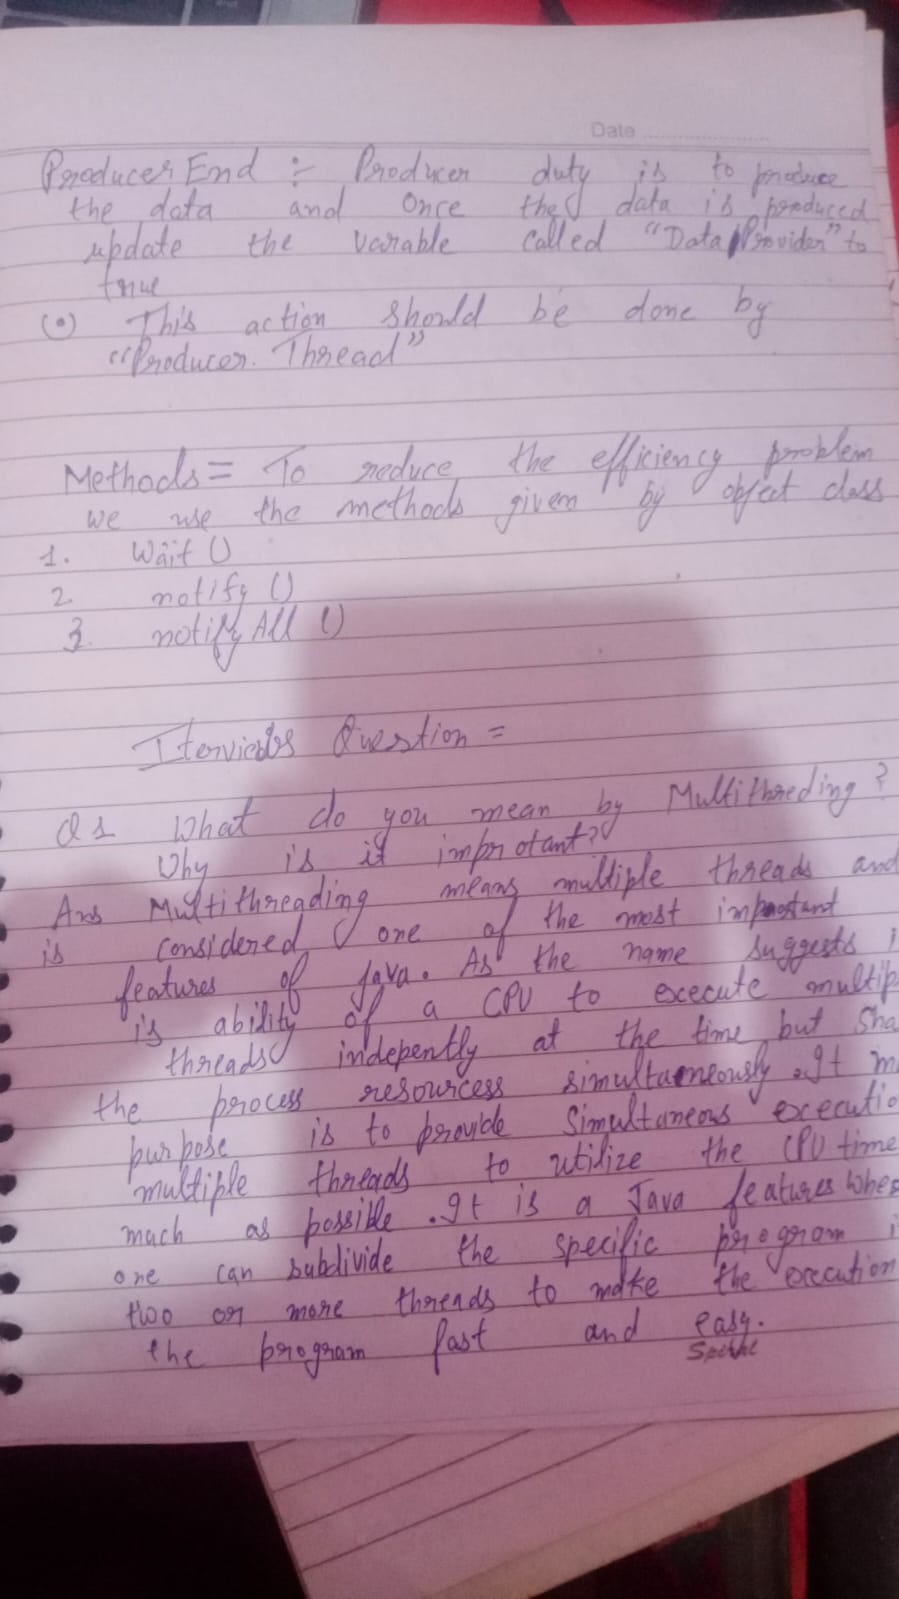 Date
Producer End :- Producer duty is to produce
the data and Once the data is produced
update the varable called "Data Provider" to
true
(•) This action should be done by
"Producer. Thread"
Methods = To reduce the efficiency problem
we use the methods given by object class
1. Wait ()
2 notify ()
3. notify All ()
Question =
Q1 What do you mean by Multithreding?
Why is it improtant?
Ans Multithreading means multiple threads and
is considered one of the most important
features of Java. As the name suggests i
is ability of a CPU to excecute multip
threads indepently at the time but Sha
the process resourcess simultaneously. It m
purpose is to provide Simultaneous excecutio
multiple threads to utilize the CPU time
much as possible. It is a Java features Wher
one can subdivide the specific program i
two or more threads to make the execution
the program fast and easy.